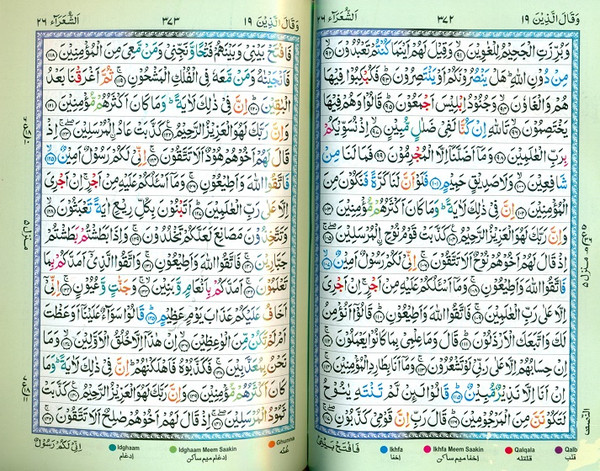 وَقَالَ الَّذِيْنَ ١٩ ٣٧٢ اَلشُّعَرَآء ٢٦
وَبُرِّزَتِ الْجَحِيْمُ لِلْغٰوِيْنَ ﴿٩١﴾ وَقِيْلَ لَهُمْ اَيْنَمَا كُنْتُمْ تَعْبُدُوْنَ ﴿٩٢﴾
مِنْ دُوْنِ اللّٰهِ ؕ هَلْ يَنْصُرُوْنَكُمْ اَوْ يَنْتَصِرُوْنَ ﴿٩٣﴾ فَكُبْكِبُوْا فِيْهَا
هُمْ وَالْغَاوٗنَ ﴿٩٤﴾ وَجُنُوْدُ اِبْلِيْسَ اَجْمَعُوْنَ ﴿٩٥﴾ قَالُوْا وَهُمْ فِيْهَا
يَخْتَصِمُوْنَ ﴿٩٦﴾ تَاللّٰهِ اِنْ كُنَّا لَفِيْ ضَلٰلٍ مُّبِيْنٍ ﴿٩٧﴾ اِذْ نُسَوِّيْكُمْ
بِرَبِّ الْعٰلَمِيْنَ ﴿٩٨﴾ وَمَاۤ اَضَلَّنَاۤ اِلَّا الْمُجْرِمُوْنَ ﴿٩٩﴾ فَمَا لَنَا مِنْ
شَافِعِيْنَ ﴿١٠٠﴾ وَلَا صَدِيْقٍ حَمِيْمٍ ﴿١٠١﴾ فَلَوْ اَنَّ لَنَا كَرَّةً فَنَكُوْنَ مِنَ
الْمُؤْمِنِيْنَ ﴿١٠٢﴾ اِنَّ فِيْ ذٰلِكَ لَاٰيَةً ؕ وَمَا كَانَ اَكْثَرُهُمْ مُّؤْمِنِيْنَ ﴿١٠٣﴾
وَاِنَّ رَبَّكَ لَهُوَ الْعَزِيْزُ الرَّحِيْمُ ﴿١٠٤﴾ كَذَّبَتْ قَوْمُ نُوْحِ الْمُرْسَلِيْنَ ﴿١٠٥﴾
اِذْ قَالَ لَهُمْ اَخُوْهُمْ نُوْحٌ اَلَا تَتَّقُوْنَ ﴿١٠٦﴾ اِنِّيْ لَكُمْ رَسُوْلٌ اَمِيْنٌ ﴿١٠٧﴾
فَاتَّقُوا اللّٰهَ وَاَطِيْعُوْنِ ﴿١٠٨﴾ وَمَاۤ اَسْـَٔلُكُمْ عَلَيْهِ مِنْ اَجْرٍ ۚ اِنْ اَجْرِيَ
اِلَّا عَلٰى رَبِّ الْعٰلَمِيْنَ ﴿١٠٩﴾ فَاتَّقُوا اللّٰهَ وَاَطِيْعُوْنِ ﴿١١٠﴾ قَالُوْۤا اَنُؤْمِنُ
لَكَ وَاتَّبَعَكَ الْاَرْذَلُوْنَ ﴿١١١﴾ قَالَ وَمَا عِلْمِيْ بِمَا كَانُوْا يَعْمَلُوْنَ ﴿١١٢﴾
اِنْ حِسَابُهُمْ اِلَّا عَلٰى رَبِّيْ لَوْ تَشْعُرُوْنَ ﴿١١٣﴾ وَمَاۤ اَنَا بِطَارِدِ الْمُؤْمِنِيْنَ ﴿١١٤﴾
اِنْ اَنَا اِلَّا نَذِيْرٌ مُّبِيْنٌ ﴿١١٥﴾ قَالُوْا لَئِنْ لَّمْ تَنْتَهِ يٰنُوْحُ
لَتَكُوْنَنَّ مِنَ الْمَرْجُوْمِيْنَ ﴿١١٦﴾ قَالَ رَبِّ اِنَّ قَوْمِيْ كَذَّبُوْنِ ﴿١١٧﴾
فَافْتَحْ بَيْنِيْ
Ikhfa
اخفا
Ikhfa Meem Saakin
اخفا میم ساکن
Qalqala
قلقله
Qalb
قلب
منزل ٥
وَقَالَ الَّذِيْنَ ١٩ ٣٧٣ اَلشُّعَرَآء ٢٦
فَافْتَحْ بَيْنِيْ وَبَيْنَهُمْ فَتْحًا وَّنَجِّنِيْ وَمَنْ مَّعِيَ مِنَ الْمُؤْمِنِيْنَ ﴿١١٨﴾
فَاَنْجَيْنٰهُ وَمَنْ مَّعَهٗ فِي الْفُلْكِ الْمَشْحُوْنِ ﴿١١٩﴾ ثُمَّ اَغْرَقْنَا بَعْدُ
الْبٰقِيْنَ ﴿١٢٠﴾ اِنَّ فِيْ ذٰلِكَ لَاٰيَةً ؕ وَمَا كَانَ اَكْثَرُهُمْ مُّؤْمِنِيْنَ ﴿١٢١﴾
وَاِنَّ رَبَّكَ لَهُوَ الْعَزِيْزُ الرَّحِيْمُ ﴿١٢٢﴾ كَذَّبَتْ عَادُ الْمُرْسَلِيْنَ ﴿١٢٣﴾ اِذْ
قَالَ لَهُمْ اَخُوْهُمْ هُوْدٌ اَلَا تَتَّقُوْنَ ﴿١٢٤﴾ اِنِّيْ لَكُمْ رَسُوْلٌ اَمِيْنٌ ﴿١٢٥﴾
فَاتَّقُوا اللّٰهَ وَاَطِيْعُوْنِ ﴿١٢٦﴾ وَمَاۤ اَسْـَٔلُكُمْ عَلَيْهِ مِنْ اَجْرٍ ۚ اِنْ اَجْرِيَ
اِلَّا عَلٰى رَبِّ الْعٰلَمِيْنَ ﴿١٢٧﴾ اَتَبْنُوْنَ بِكُلِّ رِيْعٍ اٰيَةً تَعْبَثُوْنَ ﴿١٢٨﴾
وَتَتَّخِذُوْنَ مَصَانِعَ لَعَلَّكُمْ تَخْلُدُوْنَ ﴿١٢٩﴾ وَاِذَا بَطَشْتُمْ بَطَشْتُمْ
جَبَّارِيْنَ ﴿١٣٠﴾ فَاتَّقُوا اللّٰهَ وَاَطِيْعُوْنِ ﴿١٣١﴾ وَاتَّقُوا الَّذِيْۤ اَمَدَّكُمْ بِمَا
تَعْلَمُوْنَ ﴿١٣٢﴾ اَمَدَّكُمْ بِاَنْعَامٍ وَّبَنِيْنَ ﴿١٣٣﴾ وَجَنّٰتٍ وَّعُيُوْنٍ ﴿١٣٤﴾ اِنِّيْۤ
اَخَافُ عَلَيْكُمْ عَذَابَ يَوْمٍ عَظِيْمٍ ﴿١٣٥﴾ قَالُوْا سَوَآءٌ عَلَيْنَاۤ اَوَعَظْتَ
اَمْ لَمْ تَكُنْ مِّنَ الْوٰعِظِيْنَ ﴿١٣٦﴾ اِنْ هٰذَاۤ اِلَّا خُلُقُ الْاَوَّلِيْنَ ﴿١٣٧﴾ وَمَا
نَحْنُ بِمُعَذَّبِيْنَ ﴿١٣٨﴾ فَكَذَّبُوْهُ فَاَهْلَكْنٰهُمْ ؕ اِنَّ فِيْ ذٰلِكَ لَاٰيَةً ؕ وَمَا
كَانَ اَكْثَرُهُمْ مُّؤْمِنِيْنَ ﴿١٣٩﴾ وَاِنَّ رَبَّكَ لَهُوَ الْعَزِيْزُ الرَّحِيْمُ ﴿١٤٠﴾ كَذَّبَتْ
ثَمُوْدُ الْمُرْسَلِيْنَ ﴿١٤١﴾ اِذْ قَالَ لَهُمْ اَخُوْهُمْ صٰلِحٌ اَلَا تَتَّقُوْنَ ﴿١٤٢﴾
اِنِّيْ لَكُمْ رَسُوْلٌ
Idghaam
ادغام
Idghaam Meem Saakin
ادغام میم ساکن
Ghunna
غنه
منزل ٥